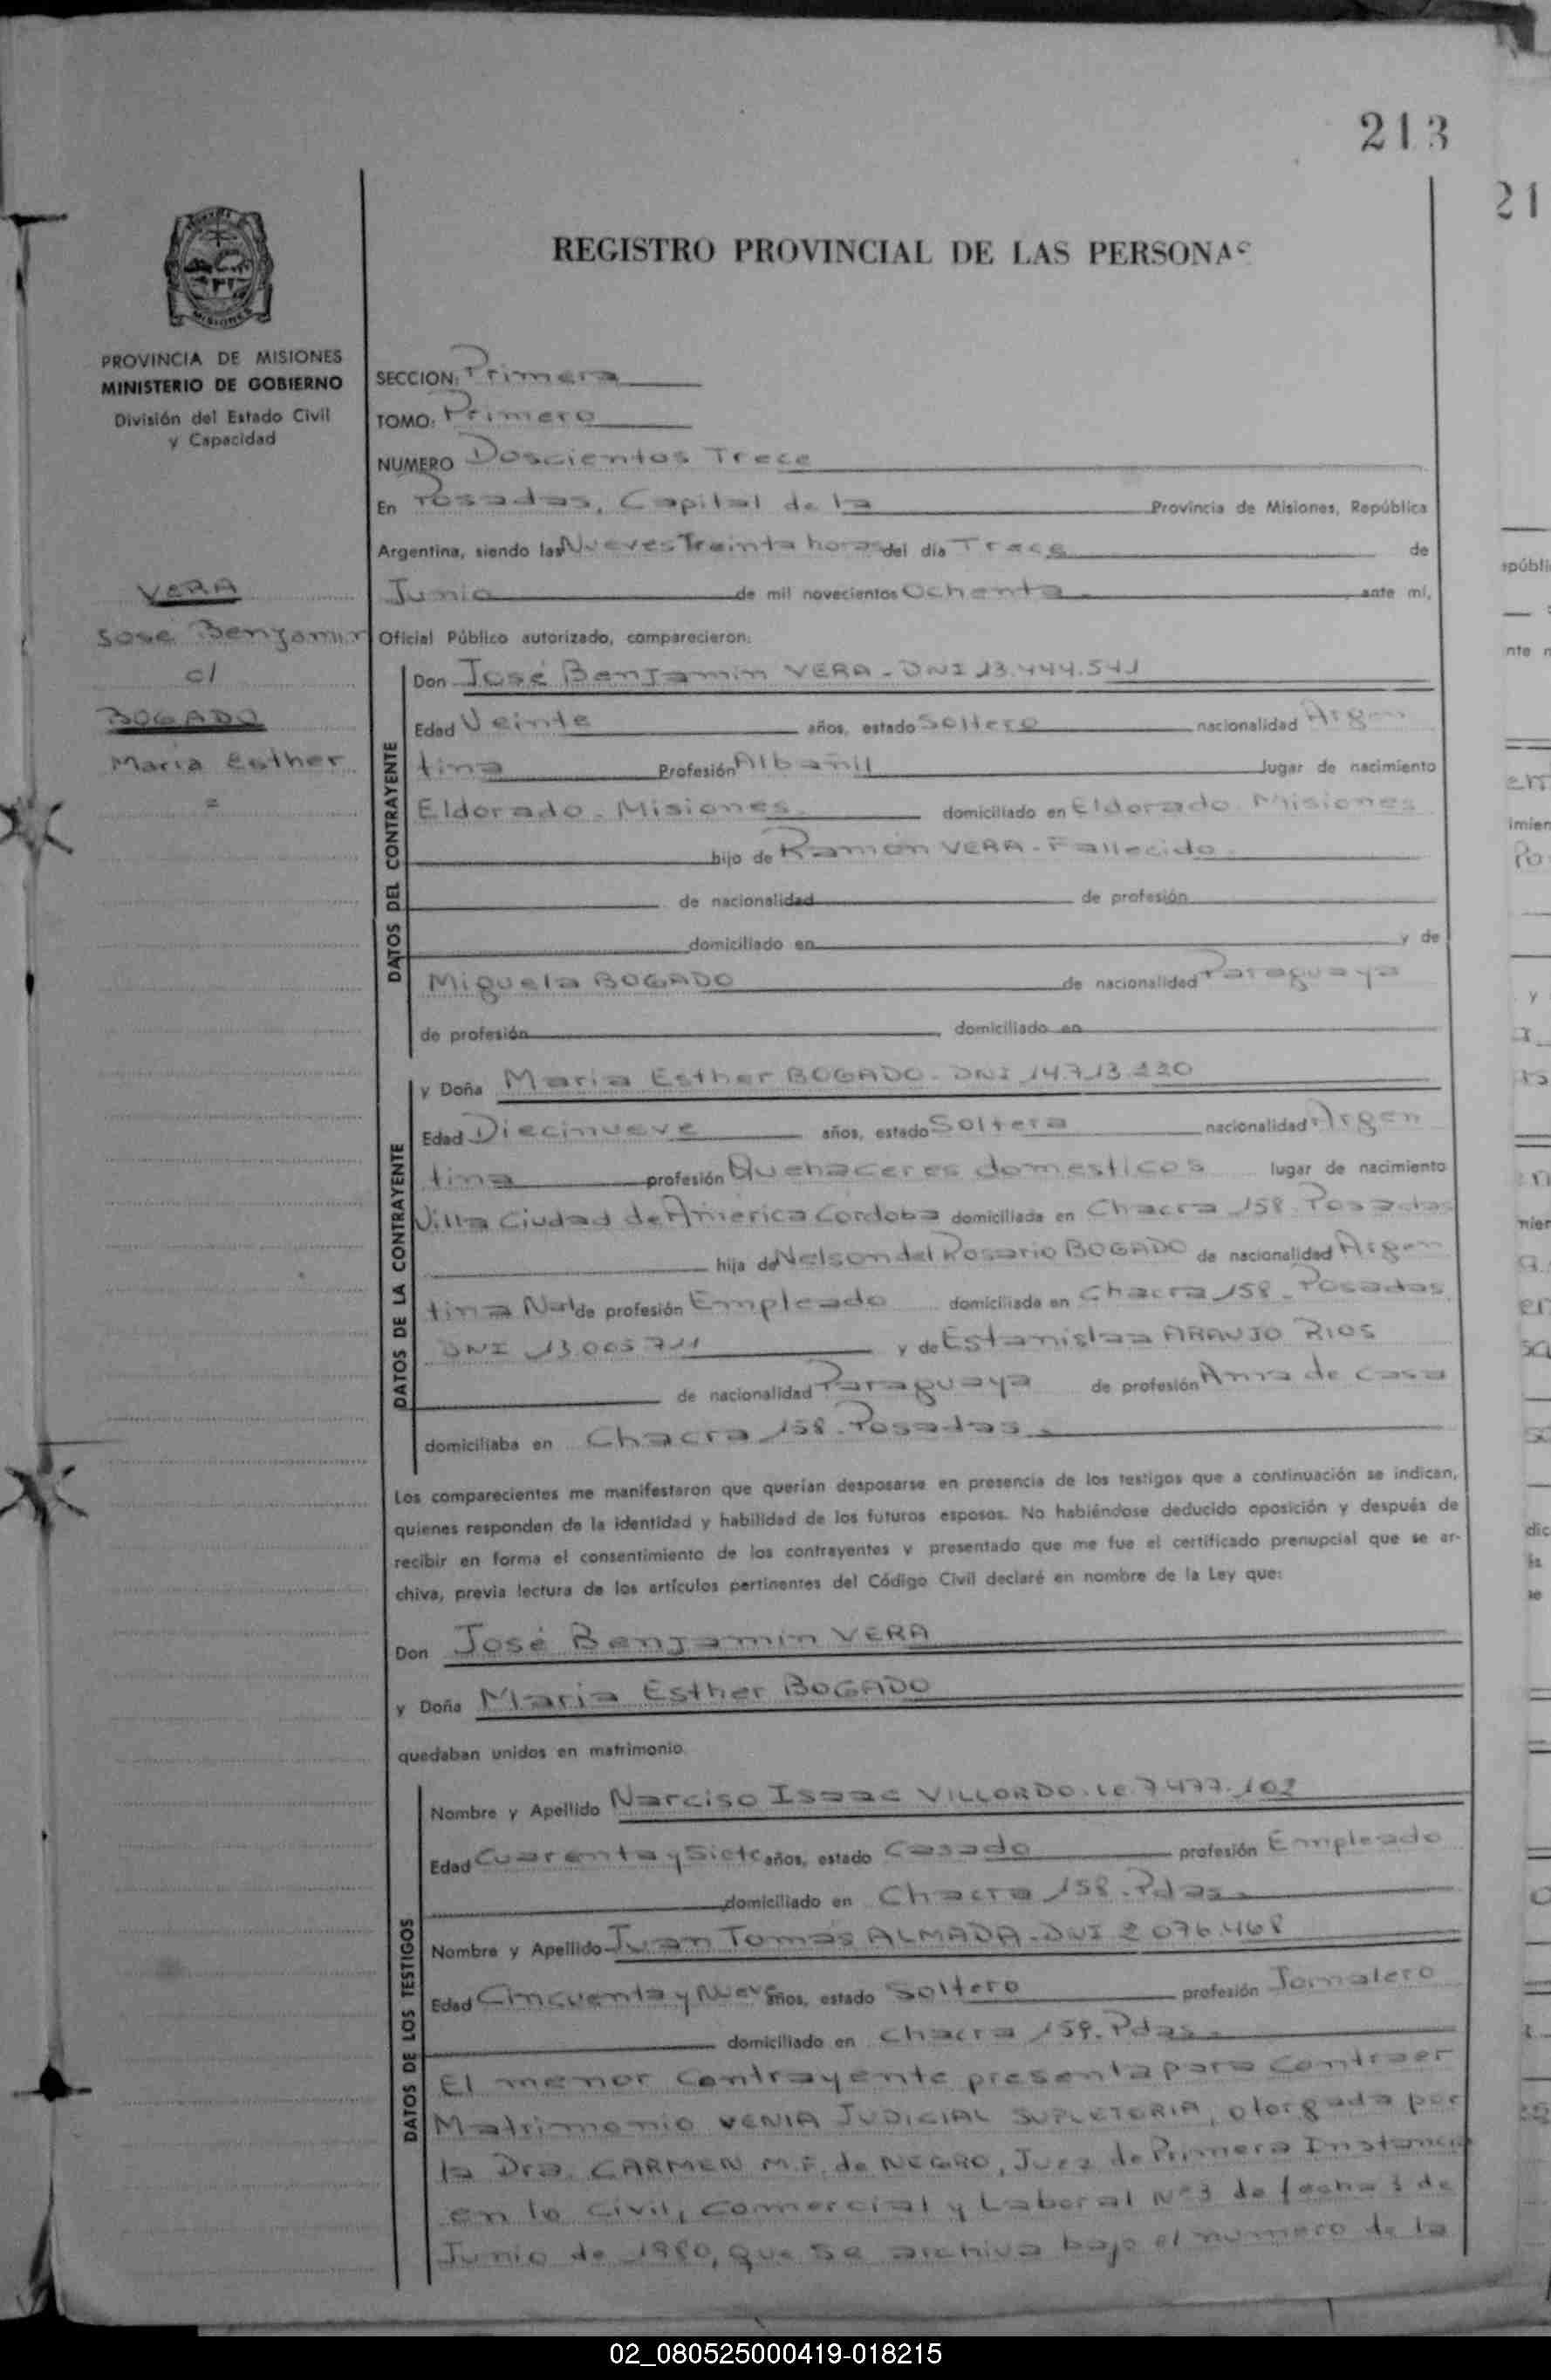 213
21
REGISTRO PROVINCIAL DE LAS PERSONAS
MISIONES
PROVINCIA DE MISIONES
MINISTERIO DE GOBIERNO
División del Estado Civil
y Capacidad
VERA
José Benjamín
c/
BOGADO
María Esther
=
SECCION: Primera
TOMO: Primero
NUMERO Doscientos Trece
En Posadas, Capital de la Provincia de Misiones, República
Argentina, siendo las Nueves Treinta horas del día Trece de
Junio de mil novecientos Ochenta ante mí,
Oficial Público autorizado, comparecieron:
DATOS DEL CONTRAYENTE
Don José Benjamín VERA - DNI 13.444.541
Edad Veinte años, estado Soltero nacionalidad Argen
tina Profesión Albañil lugar de nacimiento
Eldorado - Misiones domiciliado en Eldorado Misiones
hijo de Ramón VERA - Fallecido
de nacionalidad de profesión
domiciliado en y de
Miguela BOGADO de nacionalidad Paraguaya
de profesión domiciliado en
DATOS DE LA CONTRAYENTE
y Doña María Esther BOGADO - DNI 14.713.220
Edad Diecinueve años, estado Soltera nacionalidad Argen
tina profesión Quehaceres domesticos lugar de nacimiento
Villa Ciudad de América Córdoba domiciliada en Chacra 158. Posadas
hija de Nelson del Rosario BOGADO de nacionalidad Argen
tina Nat de profesión Empleado domiciliado en Chacra 158 - Posadas
DNI 13.005.711 y de Estanislaa ARAUJO RIOS
de nacionalidad Paraguaya de profesión Ama de casa
domiciliaba en Chacra 158. Posadas.
Los comparecientes me manifestaron que querían desposarse en presencia de los testigos que a continuación se indican,
quienes responden de la identidad y habilidad de los futuros esposos. No habiéndose deducido oposición y después de
recibir en forma el consentimiento de los contrayentes y presentado que me fue el certificado prenupcial que se ar-
chiva, previa lectura de los artículos pertinentes del Código Civil declaré en nombre de la Ley que:
Don José Benjamín VERA
y Doña María Esther BOGADO
quedaban unidos en matrimonio
DATOS DE LOS TESTIGOS
Nombre y Apellido Narciso Isaac VILLORDO. LE 7.477.102
Edad Cuarenta y Siete años, estado Casado profesión Empleado
domiciliado en Chacra 158. Pdas.
Nombre y Apellido Juan Tomás ALMADA - DNI 2.076.468
Edad Cincuenta y Nueve años, estado Soltero profesión Jornalero
domiciliado en Chacra 159. Pdas.
El menor contrayente presenta para contraer
Matrimonio VENIA JUDICIAL SUPLETORIA, otorgada por
la Dra. CARMEN M.F. de NEGRO, Juez de Primera Instancia
en lo Civil, Commercial y Laboral Nº3 de fecha 3 de
Junio de 1980, que se archiva bajo el numero de la
02_080525000419-018215